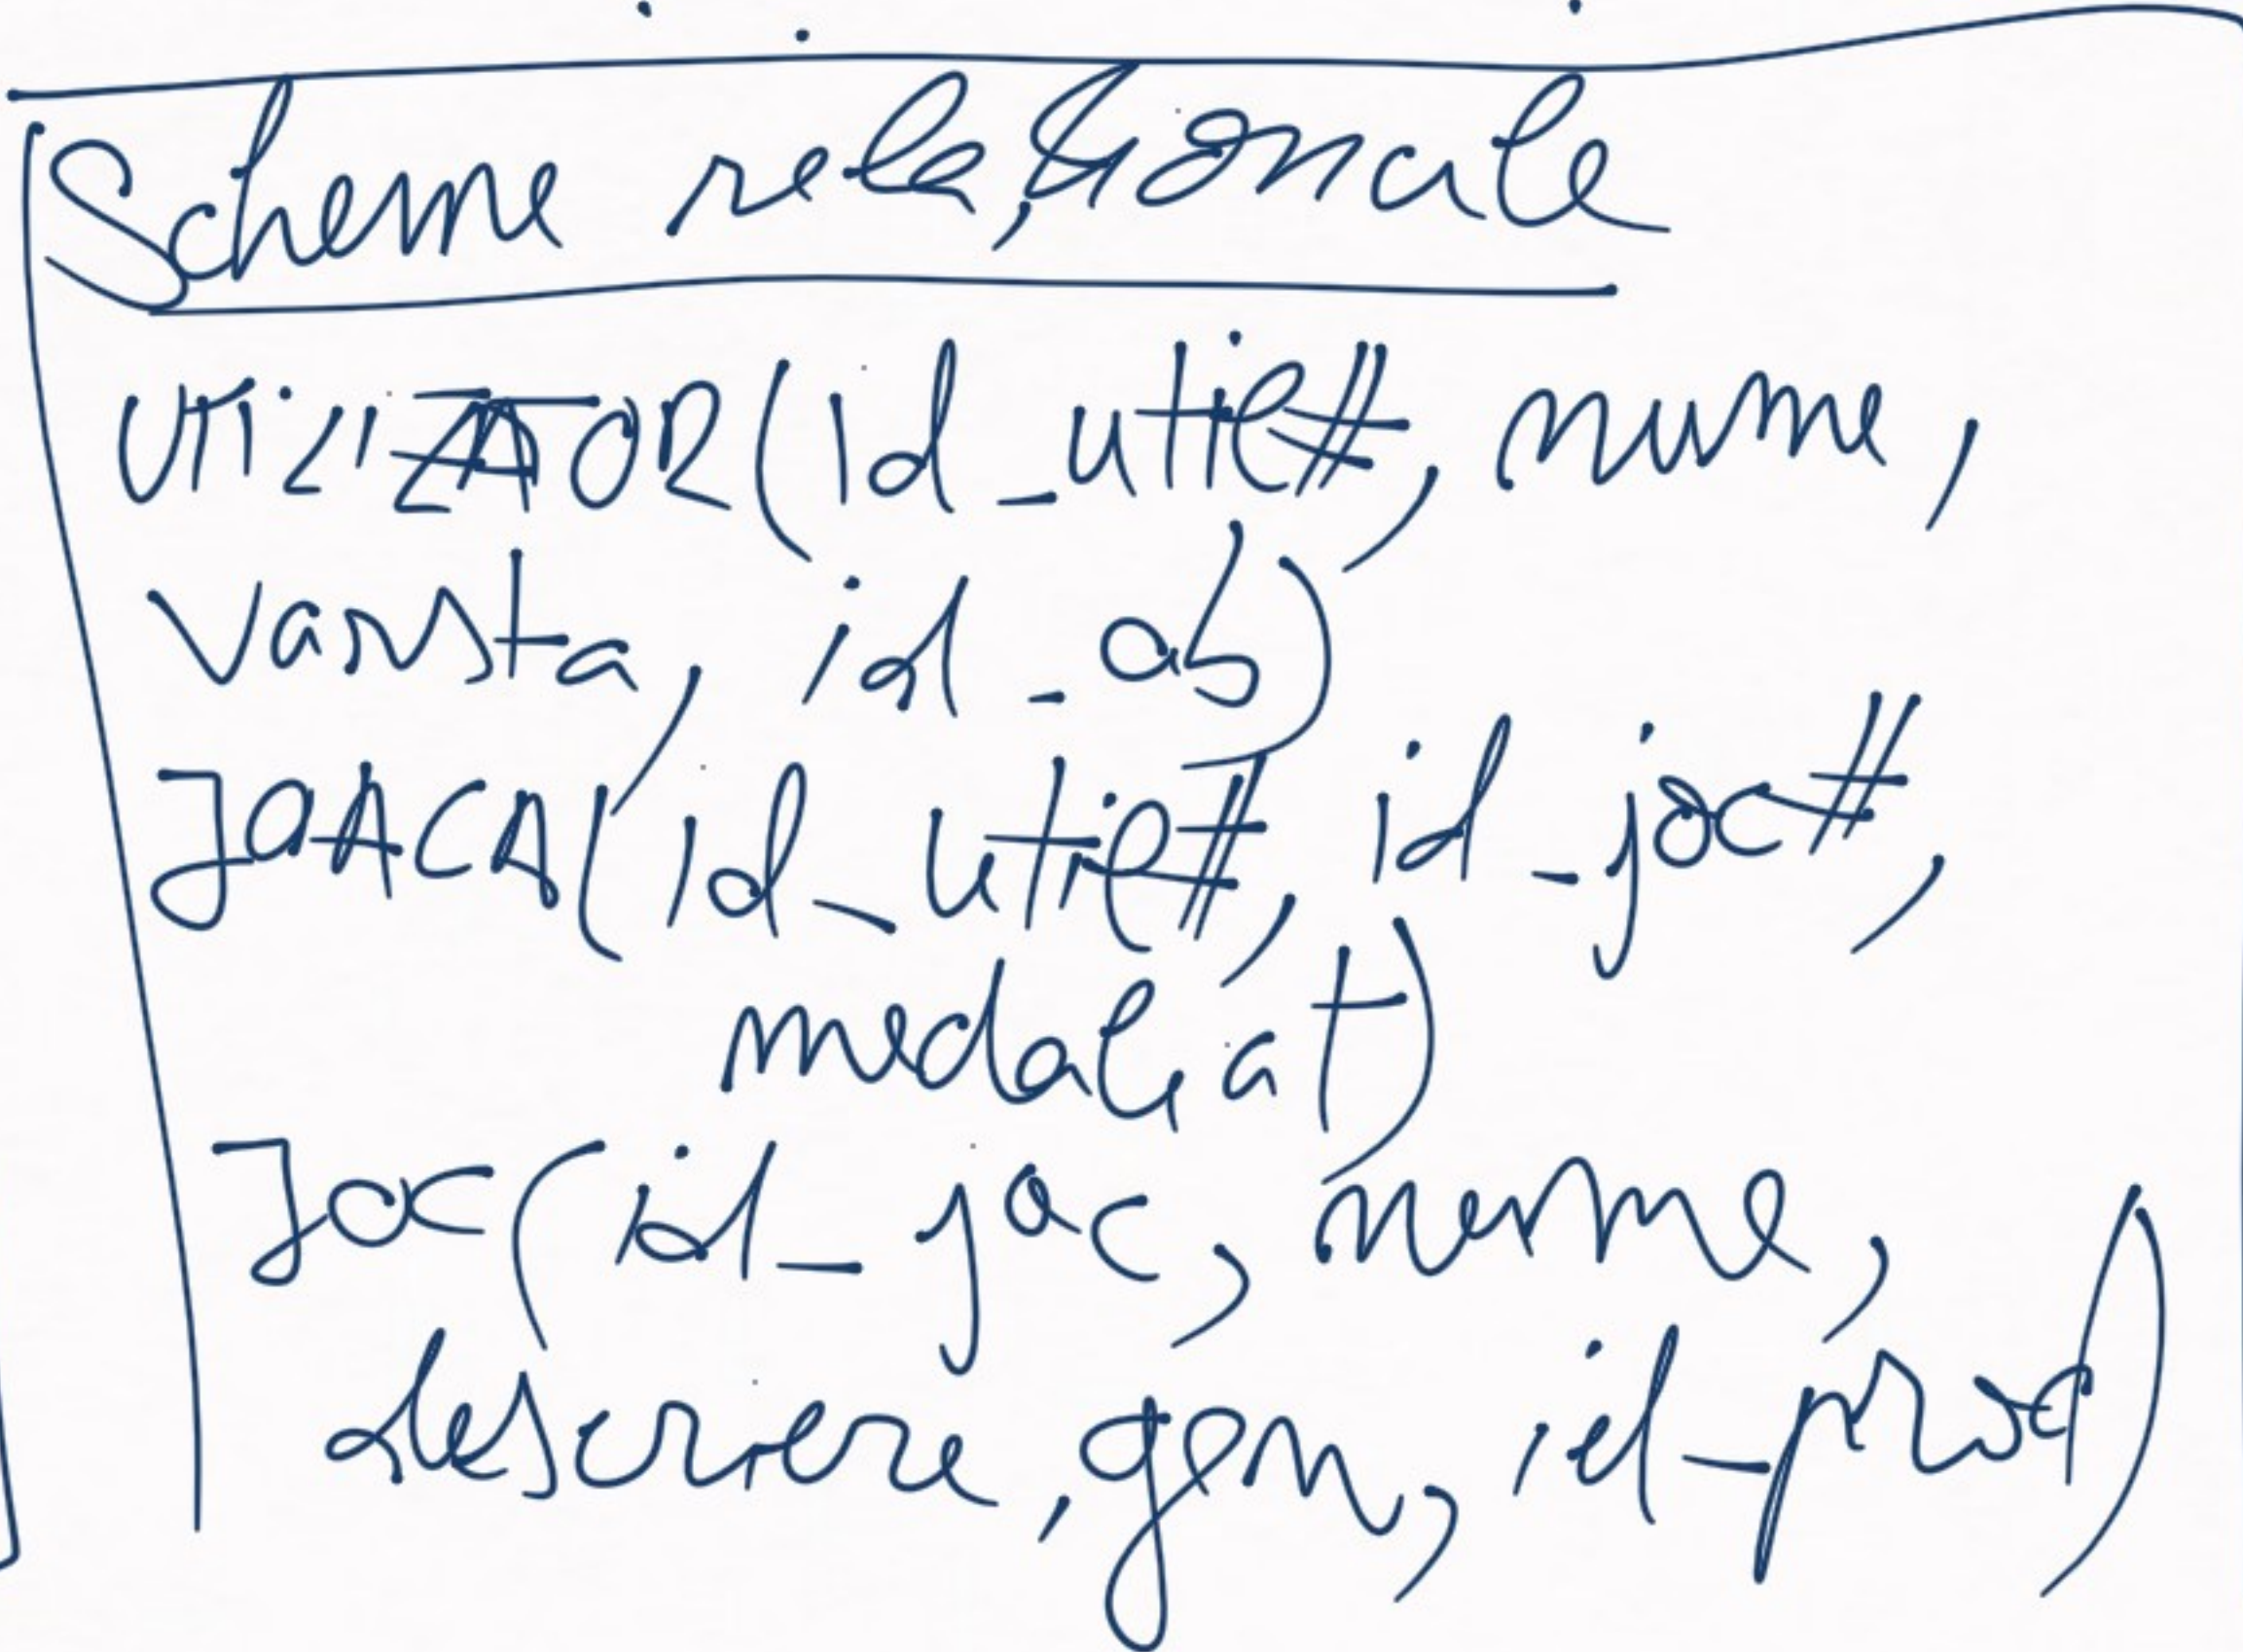 Scheme relaționale
UTILIZATOR(id_util#, nume,
varsta, id_ab)
JOACA(id_util#, id_joc#,
medaliat)
JOC(id_joc, nume,
descriere, gen, id_prod)